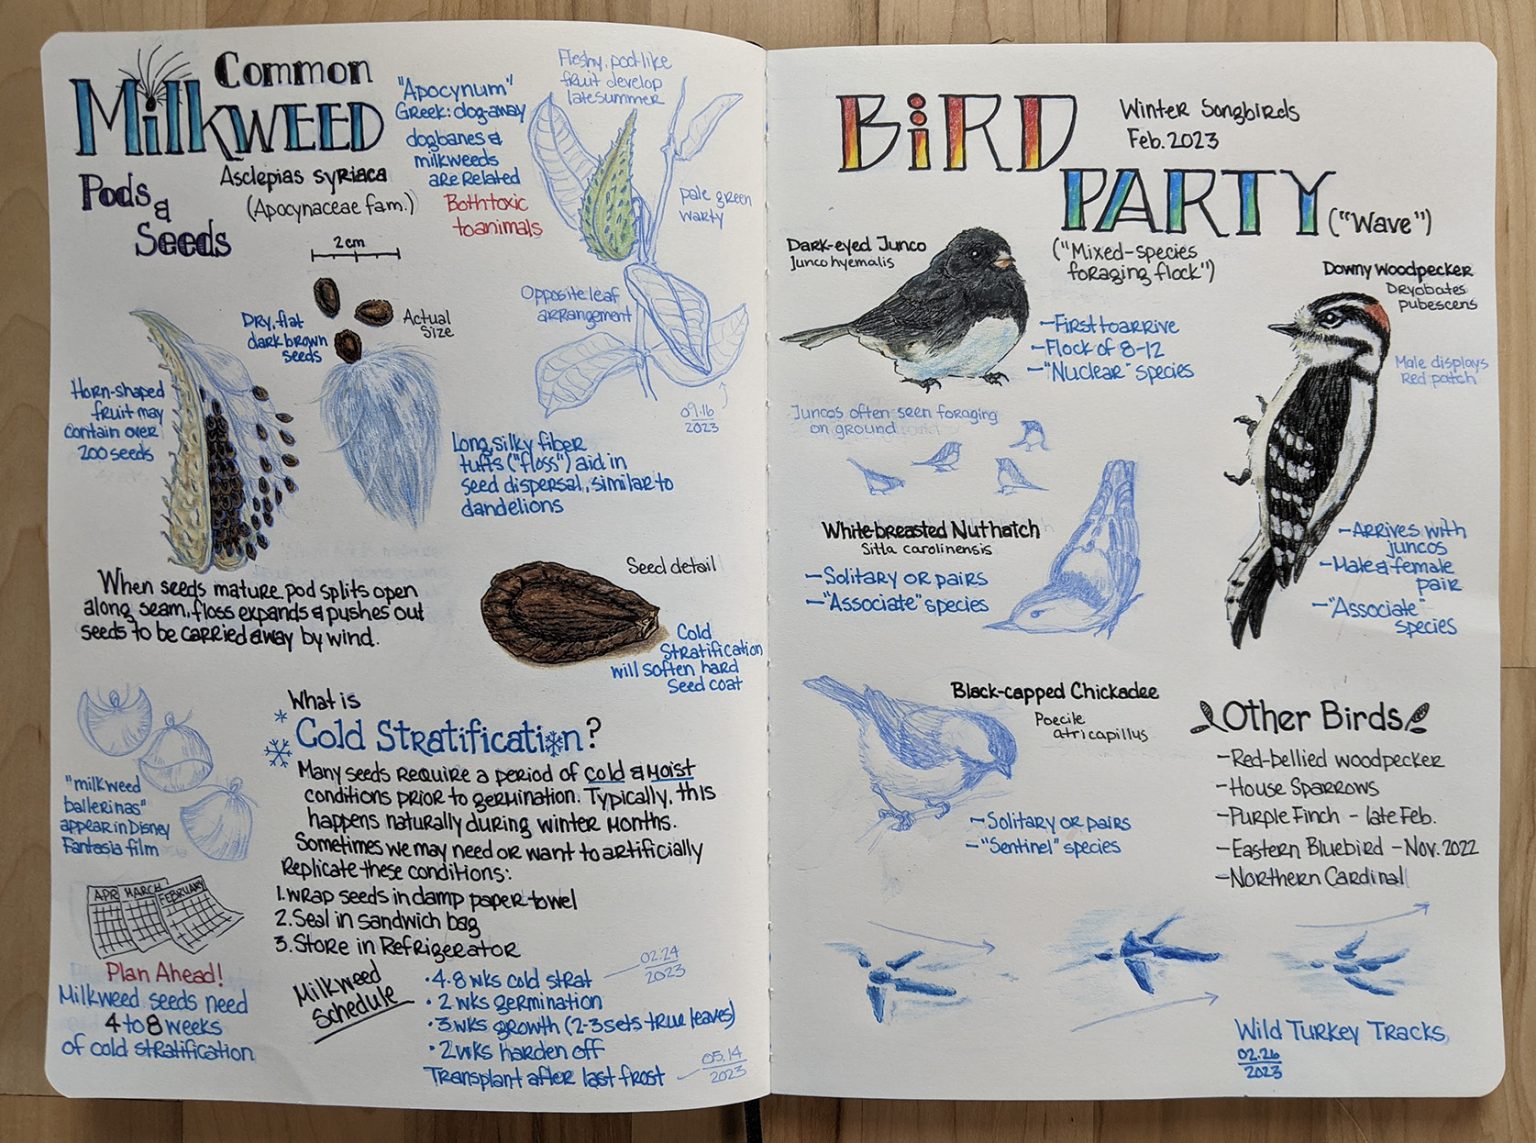 Common
MilkWEED
Pods &
Seeds
Asclepias syriaca
(Apocynaceae fam.)
"Apocynum"
Greek: dog-away
dogbanes &
milkweeds
are related
Both toxic
to animals
Fleshy, pod-like
fruit develop
late summer
pale green
warty
Opposite leaf
arrangement
09.16
2023
2cm
Actual
Size
Dry, flat
dark brown
seeds
Horn-shaped
fruit may
contain over
200 seeds
Long, silky fiber
tufts ("floss") aid in
seed dispersal, similar to
dandelions
When seeds mature pod splits open
along seam, floss expands & pushes out
seeds to be carried away by wind.
Seed detail
Cold
Stratification
will soften hard
Seed coat
"milkweed
ballerinas"
appear in Disney
Fantasia film
What is
Cold Stratification?
Many seeds require a period of cold & moist
conditions prior to germination. Typically, this
happens naturally during winter months.
Sometimes we may need or want to artificially
Replicate these conditions:
1. wrap seeds in damp paper towel
2. Seal in sandwich bag
3. Store in Refrigerator
APR MARCH FEBRUARY
Plan Ahead!
Milkweed seeds need
4 to 8 weeks
of cold stratification
Milkweed
Schedule
• 4-8 wks cold strat
• 2 wks germination
• 3 wks growth (2-3 sets true leaves)
• 2 wks harden off
Transplant after last frost
02.24
2023
05.14
2023
BiRD
PARTY ("Wave")
Winter Songbirds
Feb. 2023
("Mixed-species
foraging flock")
Dark-eyed Junco
Junco hyemalis
- First to arrive
- Flock of 8-12
- "Nuclear" species
Juncos often seen foraging
on ground
Downy woodpecker
Dryobates
pubescens
Male displays
Red patch
- Arrives with
juncos
- Male & female
pair
- "Associate"
species
White-breasted Nuthatch
Sitta carolinensis
- Solitary or pairs
- "Associate" species
Black-capped Chickadee
Poecile
atricapillus
- Solitary or pairs
- "Sentinel" species
Other Birds
- Red-bellied woodpecker
- House Sparrows
- Purple Finch - late Feb.
- Eastern Bluebird - Nov. 2022
- Northern Cardinal
Wild Turkey Tracks
02.26
2023